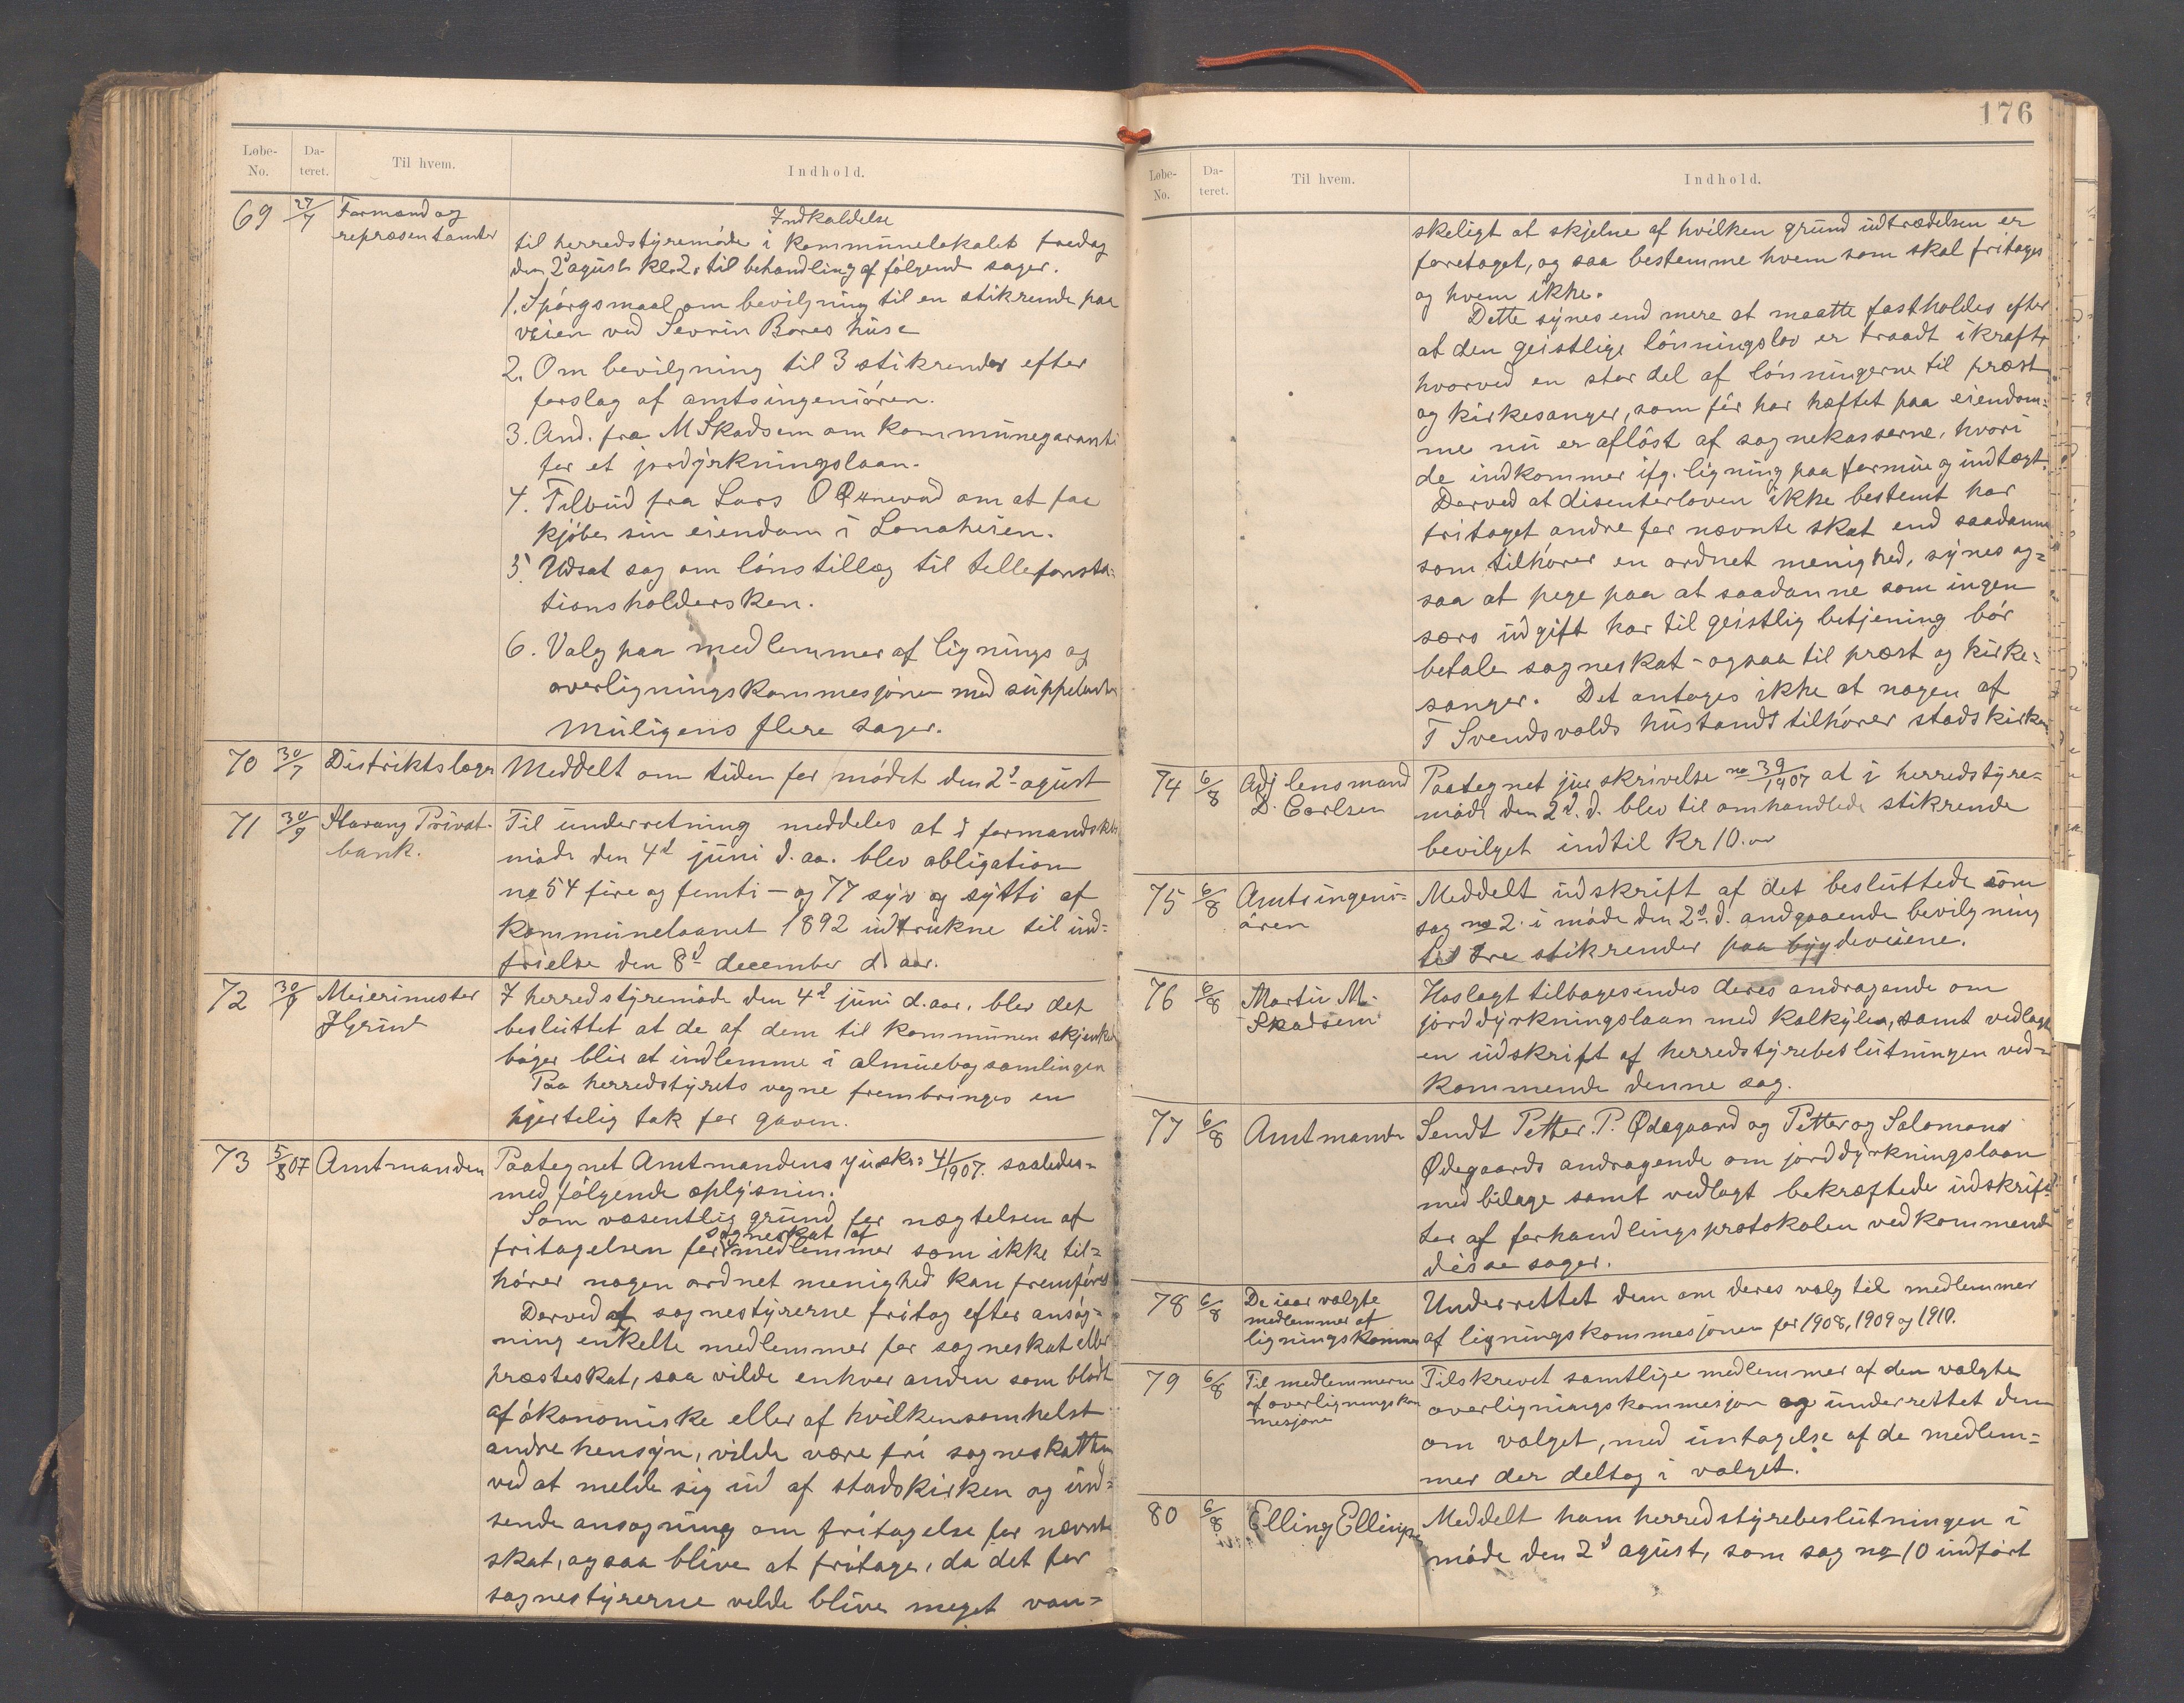 176
Løbe-No. Da-teret. Til hvem. Indhold.
69 27/7 Formand og repræsentanter
Indkaldelse
til herredstyremøde i kommunelokalet fredag
den 2d agust kl. 2, til behandling af følgende sager.
1. Spørgsmaal om bevilgning til en stikrende paa
veien ved Sevrin Bores huse
2. Om bevilgning til 3 stikrender efter
forslag af amtsingeniøren.
3. And. fra M Skadsem om kommunegaranti
for et jordyrkningslaan.
4. Tilbud fra Lars O om at faa
kjøbe sin eiendom i Lonaheien.
5. Udsat sag om lønstillæg til tellefonsta=
tionsholdersken.
6. Valg paa medlemmer af lignings og
overligningskommesjonen med suppelanter
Muligens flere sager.
70 30/7 Distriktslægen Meddelt om tiden for mødet den 2d agust
71 30/7 Stavang Privat-bank.
Til underretning meddeles at i formandskbs
møde den 4d juni d. aa. blev obligation
no 54 fire og femti – og 77 syv og sytti af
kommunelaanet 1892 udtrukne til ind=
frielse den 8d december d. aar.
72 30/7 Meierimester Grude
I herredstyremøde den 4d juni d. aar. blev det
besluttet at de af dem til kommunen skjenkede
bøger blir at indlemme i almuebogsamlingen
Paa herredstyrets vegne frembringes en
hjertelig tak for gaven.
73 5/8 07 Amtmanden
Paategnet Amtmandens jr skr: 41/1907. saaledes=
med følgende oplysnin.
Som væsentlig grund for nægtelsen af
sogneskat af
fritagelsen for medlemmer som ikke til=
hører nogen ordnet menighed kan fremføres
Derved at sognestyrerne fritog efter ansøg=
ning enkelte medlemmer for sogneskat eller
præsteskat, saa vilde enhver anden som blodt
af økonomiske eller af hvilkensomhelst
andre hensyn, vilde være fri sogneskatten
ved at melde sig ud af stadskirken og ind=
sende ansøgning om fritagelse for nævnte
skat, ogsaa blive at fritage, da det for
sognestyrerne vilde blive meget van=
Løbe-No. Da-teret. Til hvem. Indhold.
skeligt at skjelne af hvilken grund udtrædelsen er
foretaget, og saa bestemme hvem som skal fritages
og hvem ikke.
Dette synes end mere at maatte fastholdes efter
at den geistlige lønningslov er traadt i kraft,
hvorved en stor del af lønningerne til præst
og kirkesanger, som før har hæftet paa eiendom=
me nu er afløst af sognekasserne, hvori
de indkommer ifg. ligning paa formue og indtægt.
Derved at disenterloven ikke bestemt har
fritaget andre for nævnte skat end saadanne
som tilhører en ordnet menighed, synes og=
saa at pege paa at saadanne som ingen
særs udgift har til geistlig betjening bør
betale sogneskat – ogsaa til præst og kirke=
sanger. Det antages ikke at nogen af
T Svendsvolds hustandt tilhører stadskirken
74 6/8 Adj lensmand D. Carlsen
Paategnet jur skrivelse no 39/1907 at i herredstyre=
møde den 2d. d. blev til omhandlede stikrende
bevilget indtil Kr 10.00
75 6/8 Amtsingeni-øren
Meddelt udskrift af det besluttede som
sag no 2. i møde den 2d. d. andgaaende bevilgning
til tre stikrender paa bygdeveiene.
76 6/8 Martin M. Skadsem
Hoslagt tilbagesendes deres andragende om
jorddyrkningslaan med kalkyle, samt vedlagt
en udskrift af herredstyrebeslutningen ved=
kommende denne sag.
77 6/8 Amtmanden
Sendt Petter. P. Ødegaard og Petter og Salomans
Ødegaards andragende om jorddyrkningslaan
med bilage samt vedlagt bekræftede udskrif=
ter af forhandlingsprotokolen vedkommende
disse sager.
78 6/8 De iaar valgte medlemmer af ligningskommes
Underrettet dem om deres valg til medlemmer
af ligningskommesjonen for 1908, 1909 og 1910.
79 6/8 Til medlemmerne af overligningskom mesjonen
Tilskrevet samtlige medlemmer af den valgte
overligningskommesjon og underrettet dem
om valget, med untagelse af de medlem=
mer der deltog i valget.
80 6/8 Elling Ellings
Meddelt ham herredstyrebeslutningen i
møde den 2d agust, som sag no 10 indført